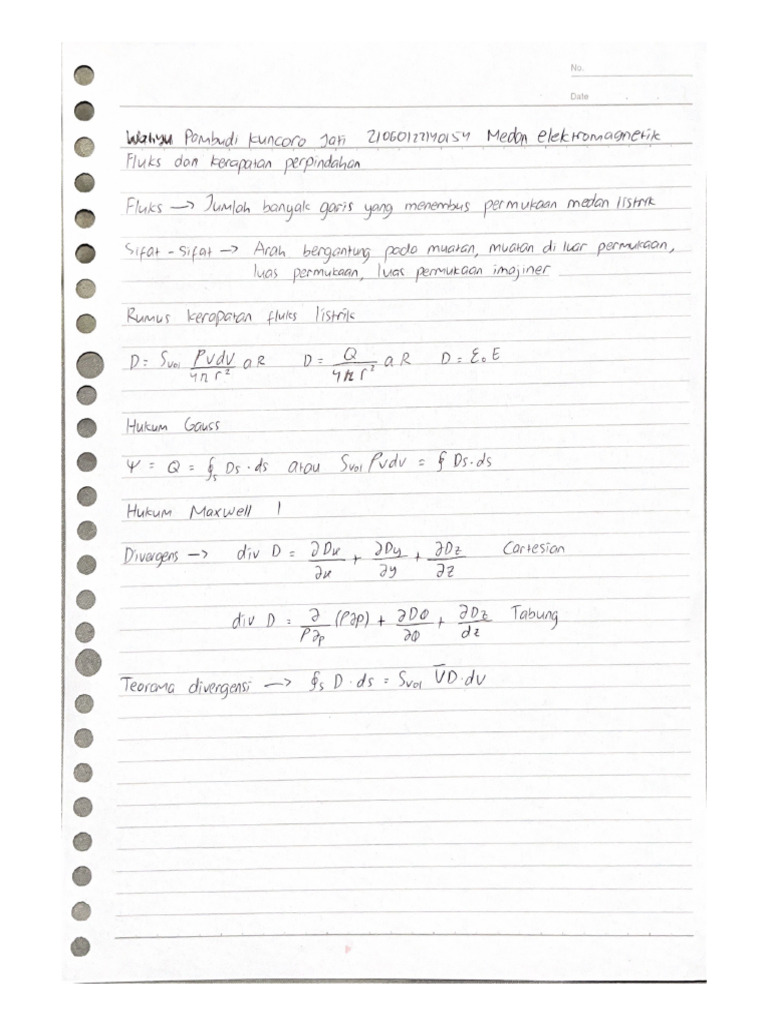 No.
Date
Wahyu Pambudi Kuncoro Jati 21060122140154 Medan elektromagnetik
Fluks dan kerapatan perpindahan
Fluks → Jumlah banyak garis yang menembus permukaan medan listrik
Sifat - Sifat → Arah bergantung pada muatan, muatan di luar permukaan,
luas permukaan, luas permukaan imajiner
Rumus kerapatan fluks listrik
D = ∫vol ρvdv/4πr² aR D = Q/4πr² aR D = ε₀E
Hukum Gauss
Ψ = Q = ∮s Ds·ds atau ∫vol ρvdv = ∮ Ds·ds
Hukum Maxwell 1
Divergens → div D = ∂Dx/∂x + ∂Dy/∂y + ∂Dz/∂z Cartesian
div D = ∂/ρ∂ρ (ρ∂ρ) + ∂DΦ/∂Φ + ∂Dz/dz Tabung
Teorama divergensi → ∮s D·ds = ∫vol ∇̅D·dv